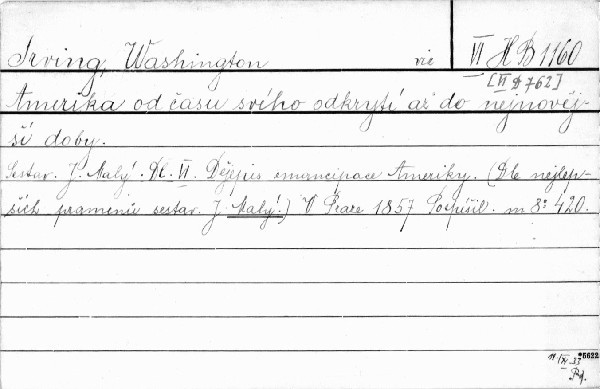 Irving, Washington viz VI H B 1160
[VI D 762]
Amerika od času svého odkrytí až do nejnověj-
ší doby.
Sestav. J. Malý. Dl. VI. Dějepis emancipace Ameriky. (Dle nejlep-
ších pramenův sestav. J. Malý.) V Praze 1857 Pospíšil. m 8° 420.
11/IX 33 *5622